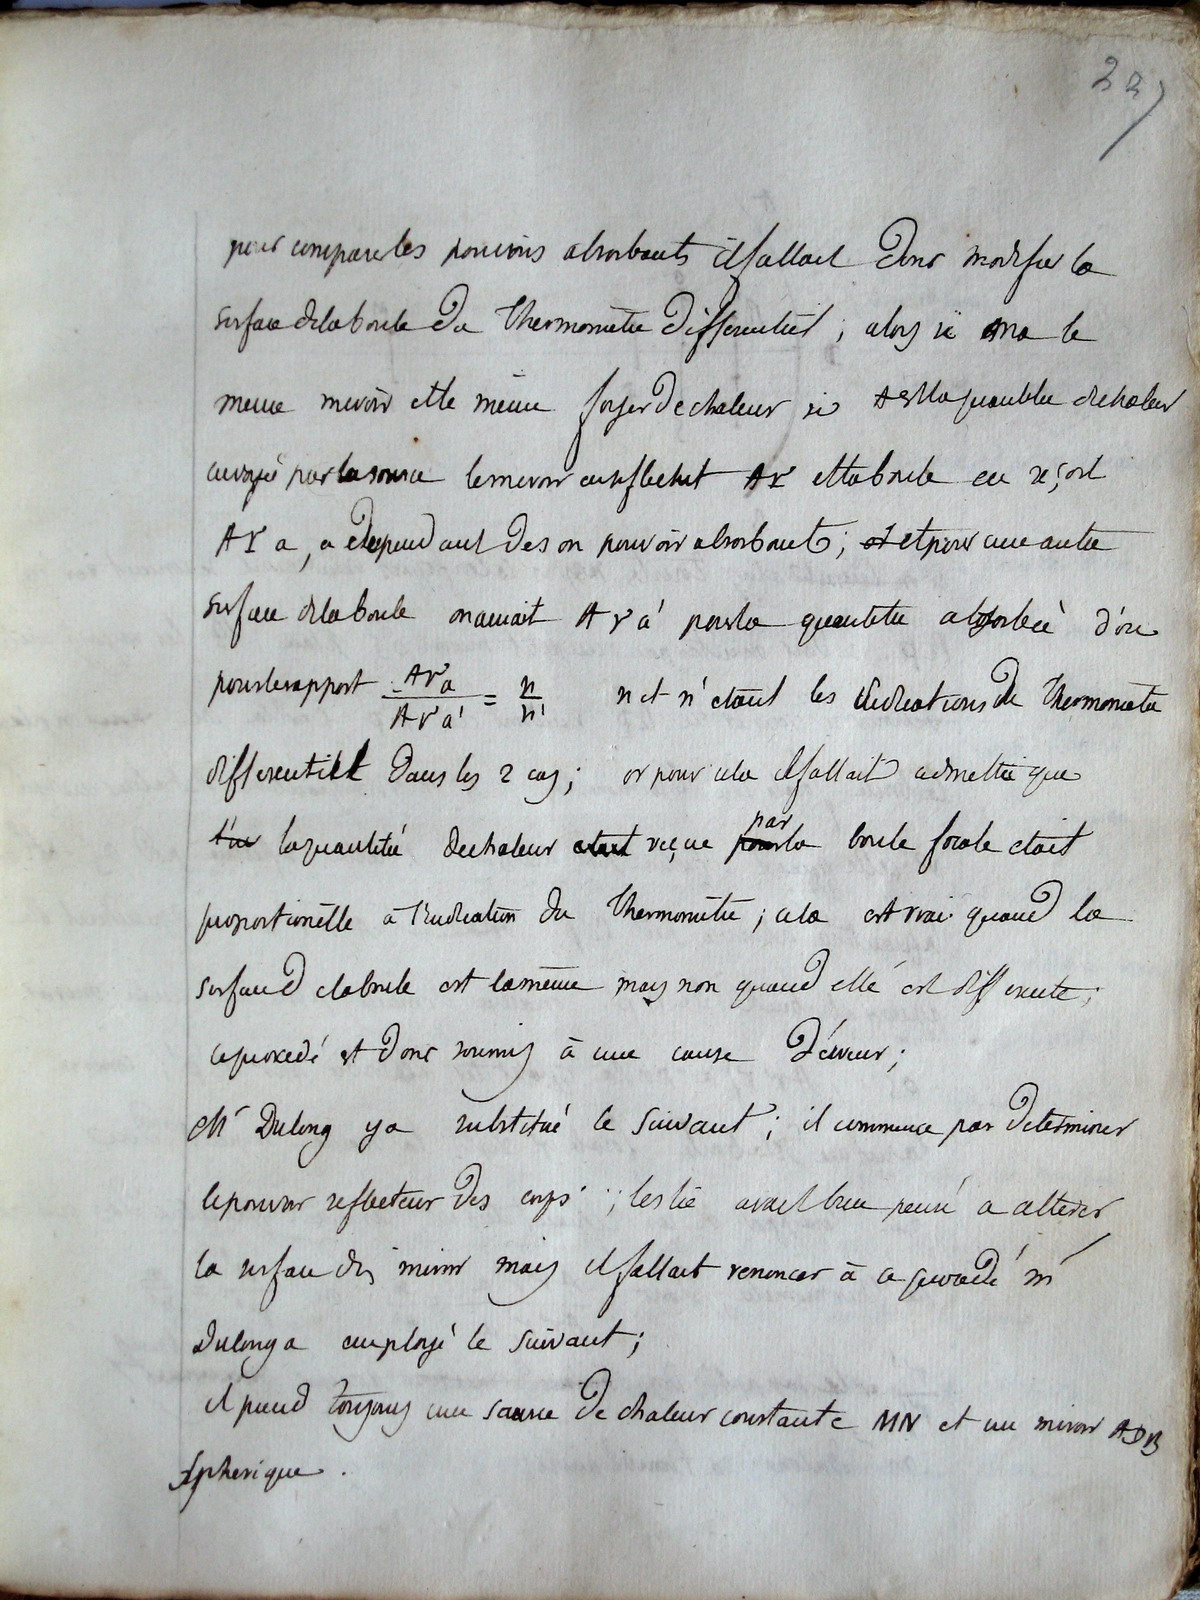 227
pour comparer les pouvoirs absorbants il fallait donc modifier la
surface de la boule du thermometre differentiel ; alors si on a le
meme miroir et le même foyer de chaleur si A est la quantitée de chaleur
envoyée par la source le miroir en reflechit Ar et la boule en reçoit
A r a , a dependant de son pouvoir absorbant ; et pour une autre
surface de la boule on aurait A r a' pour la quantitée absorbée d'où
pour le rapport Ara / Ara' = n / n' n et n' etant les indications du thermometre
differentiel dans les 2 cas ; or pour cela il fallait admettre que
la quantité de chaleur reçue par la boule focale etait
proportionelle a l'indication du thermometre ; cela est vrai quand la
surface de la boule est la même mais non quand elle est differente ;
ce procedé est donc soumis à une cause d'erreur ;
Mr Dulong y a substitué le suivant ; il commence par determiner
le pouvoir reflecteur des corps ; leslie avait bien pensé a alterer
la surface du miroir mais il fallait renoncer à ce procedé mr
Dulong a employé le suivant ;
il prend toujours une source de chaleur constante MN et un miroir ADB
spherique .